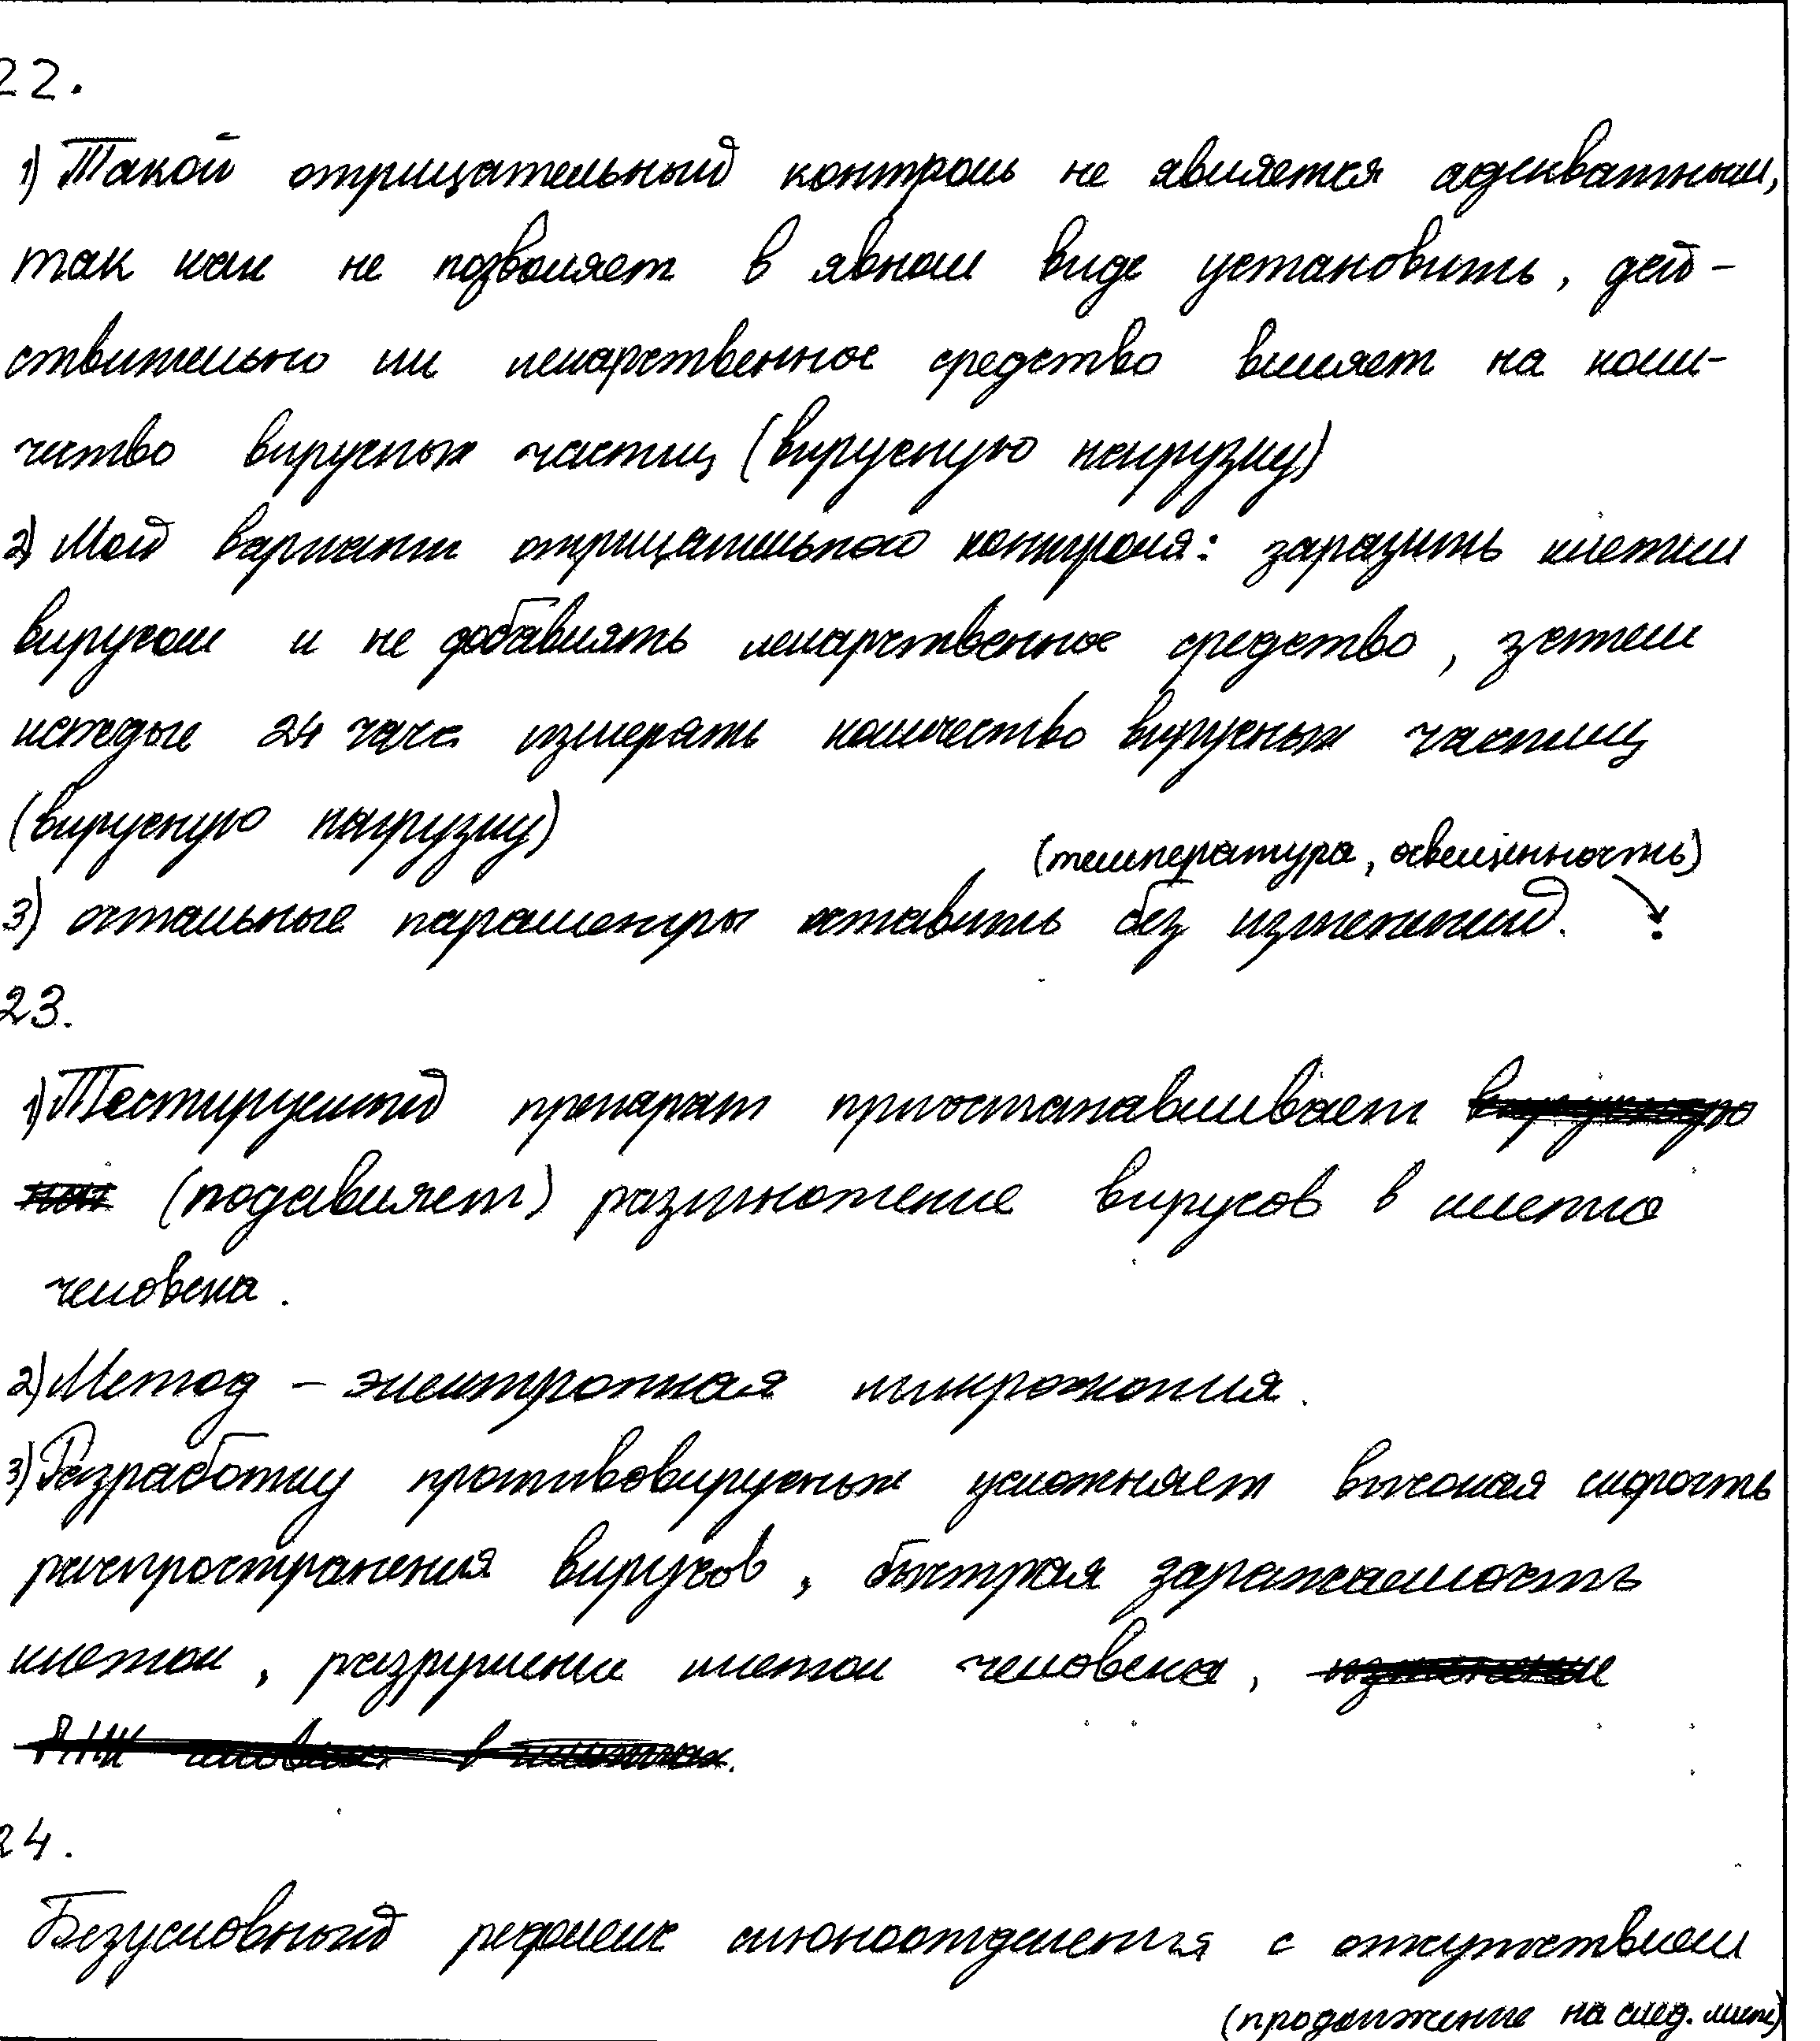 22.
1) Такой отрицательный контроль не является адекватным,
так как не позволяет в явном виде установить, дей-
ствительно ли лекарственное средство влияет на коли-
чество вирусных частиц (вирусную нагрузку)
2) Мой вариант отрицательного контроля: заразить клетки
вирусом и не добавлять лекарственное средство, затем
каждые 24 часа измерять количество вирусных частиц
(вирусную нагрузку)
(температура, освещенность)
3) остальные параметры оставить без изменений.
23.
1) Тестируемый препарат приостанавливает
(подавляет) размножение вирусов в клетке
человека.
2) Метод – электронная микроскопия.
3) Разработку противовирусных усложняет высокая скорость
распространения вирусов, быстрая заражаемость
клеток, разрушение клеток человека,
24.
Безусловный рефлекс слюноотделения с отсутствием
(продолжение на след. листе)